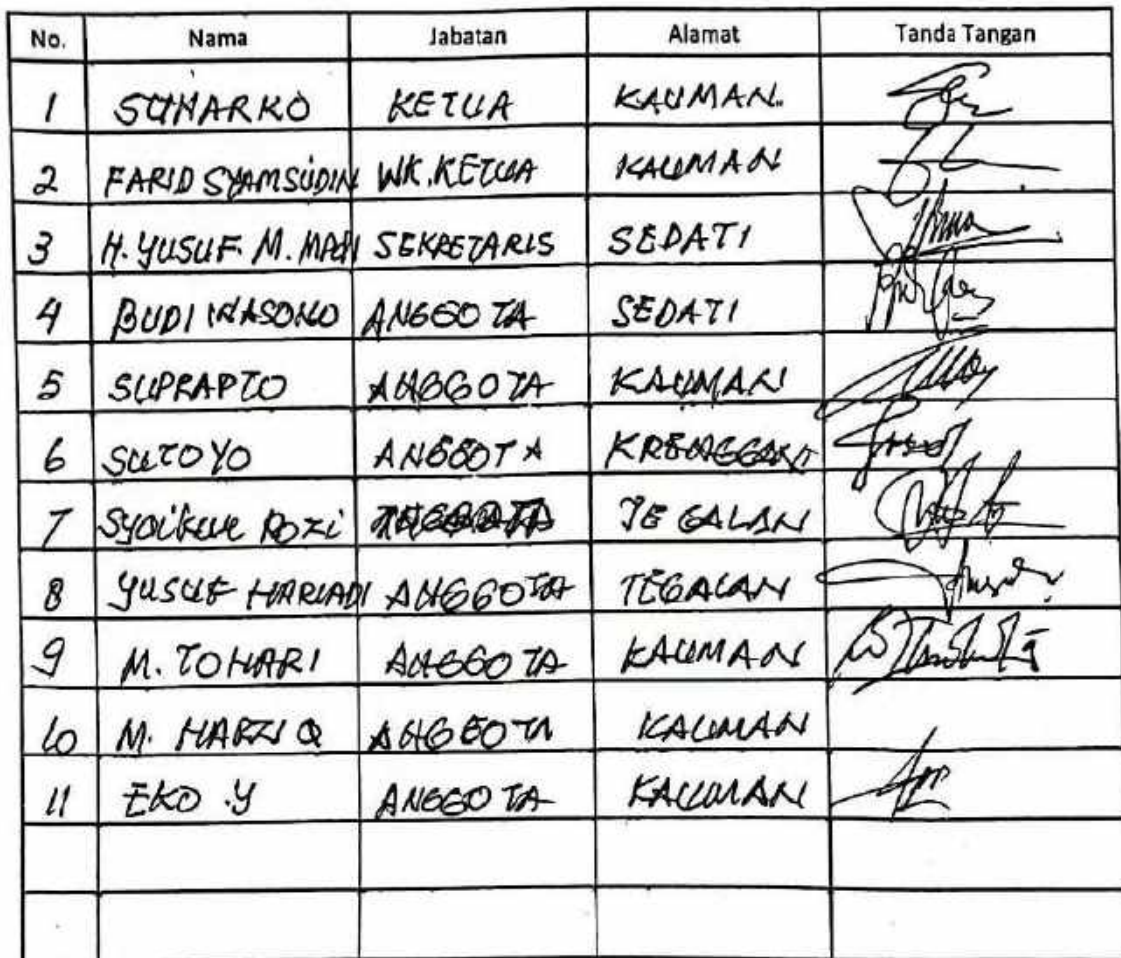 No. Nama Jabatan Alamat Tanda Tangan
1 SUHARKO KETUA KAUMAN.
2 FARID SYAMSUDIN WK. KETUA KAUMAN
3 H. YUSUF. M. SEKRETARIS SEDATI
4 BUDI WASONO ANGGOTA SEDATI
5 SUPRAPTO ANGGOTA KAUMAN
6 SUTOYO ANGGOTA
7 Rozi ANGGOTA TEGALAN
8 YUSUF HARIADI ANGGOTA TEGALAN
9 M. TOHARI ANGGOTA KAUMAN
10 M. ANGGOTA KAUMAN
11 EKO .Y ANGGOTA KAUMAN